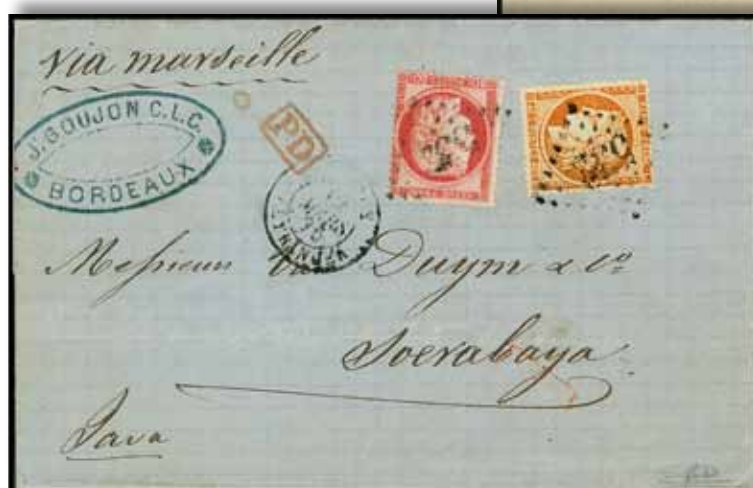 via marseille
J. GOUJON C.L.C.
BORDEAUX
PD
Messieurs Duym & Co
Soerabaya
Java